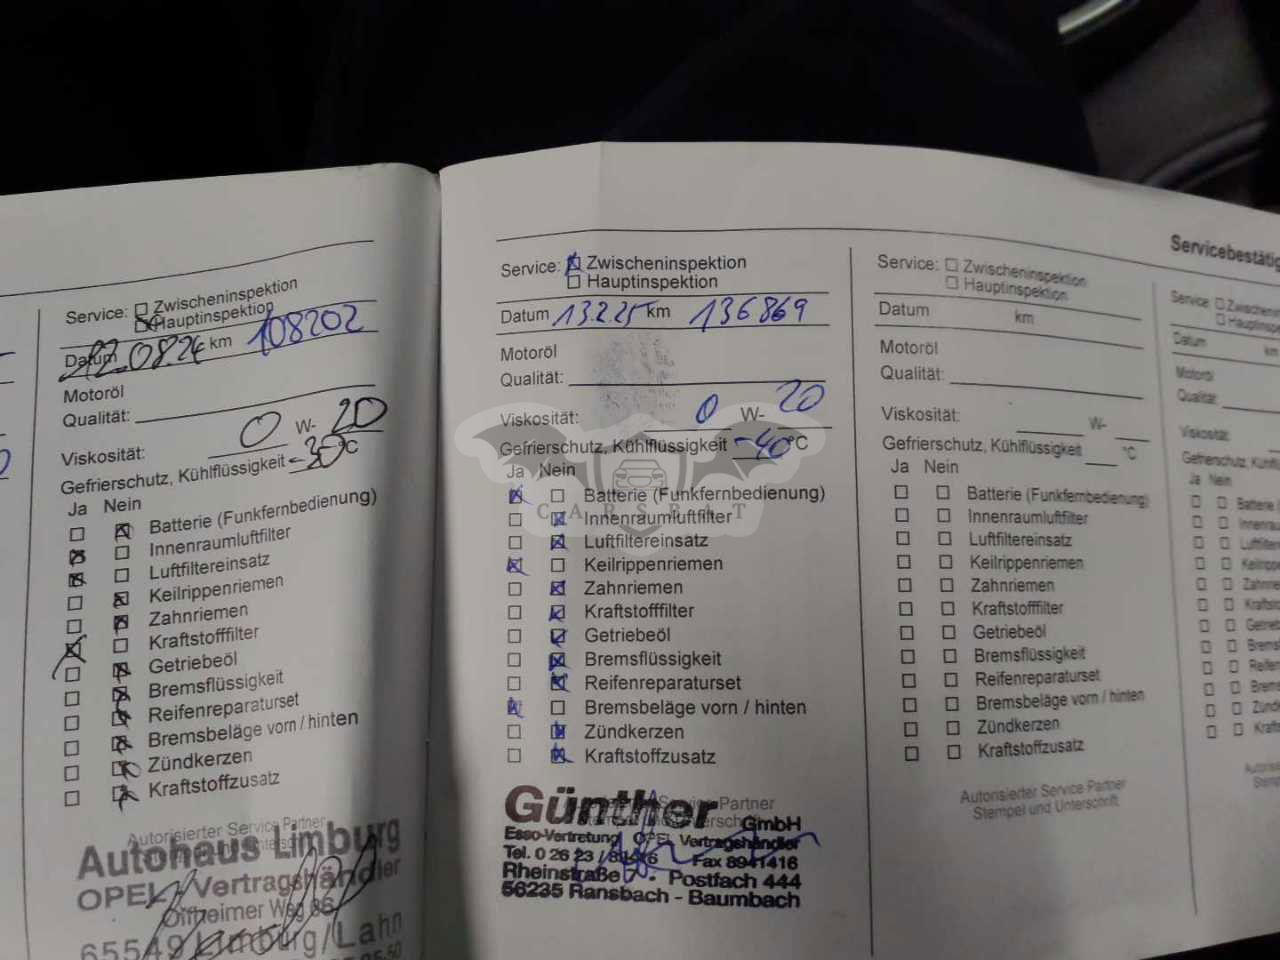 Servicebestätig
Service: Zwischeninspektion
Hauptinspektion
Datum 12.08.24 km 108202
Motoröl
Qualität:
Viskosität: 0 W- 20
Gefrierschutz, Kühlflüssigkeit -30 °C
Ja Nein
Batterie (Funkfernbedienung)
Innenraumluftfilter
Luftfiltereinsatz
Keilrippenriemen
Zahnriemen
Kraftstofffilter
Getriebeöl
Bremsflüssigkeit
Reifenreparaturset
Bremsbeläge vorn / hinten
Zündkerzen
Kraftstoffzusatz
Autorisierter Service Partner
Autohaus Limburg
OPEL Vertragshändler
Offheimer Weg 86
65549 Limburg/Lahn
Service: Zwischeninspektion
Hauptinspektion
Datum 13.2.25 km 136869
Motoröl
Qualität:
Viskosität: 0 W- 20
Gefrierschutz, Kühlflüssigkeit -40 °C
Ja Nein
Batterie (Funkfernbedienung)
Innenraumluftfilter
Luftfiltereinsatz
Keilrippenriemen
Zahnriemen
Kraftstofffilter
Getriebeöl
Bremsflüssigkeit
Reifenreparaturset
Bremsbeläge vorn / hinten
Zündkerzen
Kraftstoffzusatz
Service Partner
Günther GmbH
Esso-Vertretung OPEL Vertragshändler
Tel. 0 26 23 / Fax 8941416
Rheinstraße 7 - Postfach 444
56235 Ransbach - Baumbach
CARSBAT
Service: Zwischeninspektion
Hauptinspektion
Datum km
Motoröl
Qualität:
Viskosität: W-
Gefrierschutz, Kühlflüssigkeit °C
Ja Nein
Batterie (Funkfernbedienung)
Innenraumluftfilter
Luftfiltereinsatz
Keilrippenriemen
Zahnriemen
Kraftstofffilter
Getriebeöl
Bremsflüssigkeit
Reifenreparaturset
Bremsbeläge vorn / hinten
Zündkerzen
Kraftstoffzusatz
Autorisierter Service Partner
Stempel und Unterschrift
Service: Zwischenin
Hauptinspe
Datum km
Motoröl
Qualität:
Viskosität:
Gefrierschutz, Kühlfl
Ja Nein
Batterie (
Innenrau
Luftfilte
Keilripp
Zahnrie
Kraftsto
Getrieb
Brems
Reifen
Brem
Zünd
Kraft